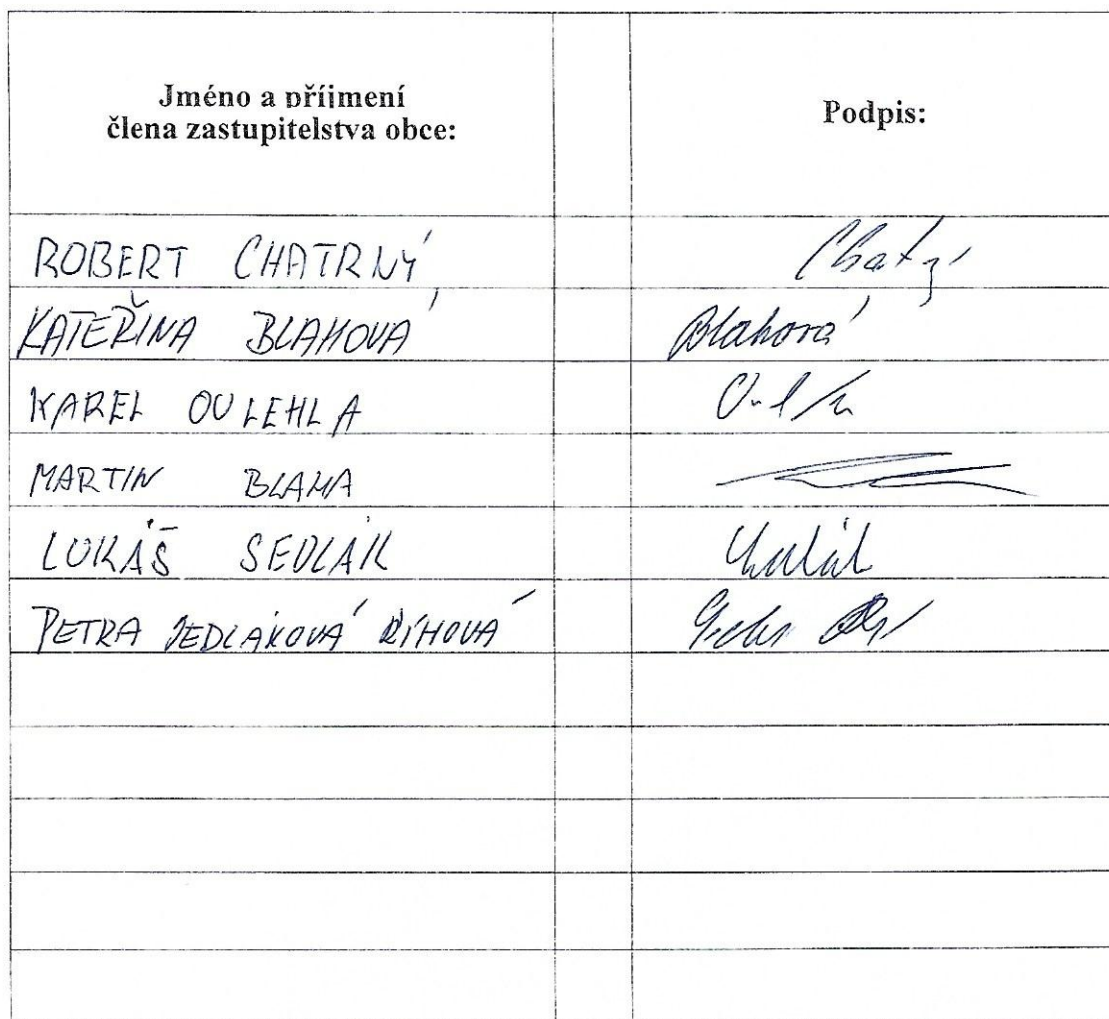 Jméno a příjmení
člena zastupitelstva obce:
Podpis:
ROBERT CHATRNÝ
KATEŘINA BLAHOVÁ Blahová
KAREL OULEHLA
MARTIN BLAHA
LUKÁŠ SEDLÁK
PETRA SEDLÁKOVÁ ŘÍHOVÁ